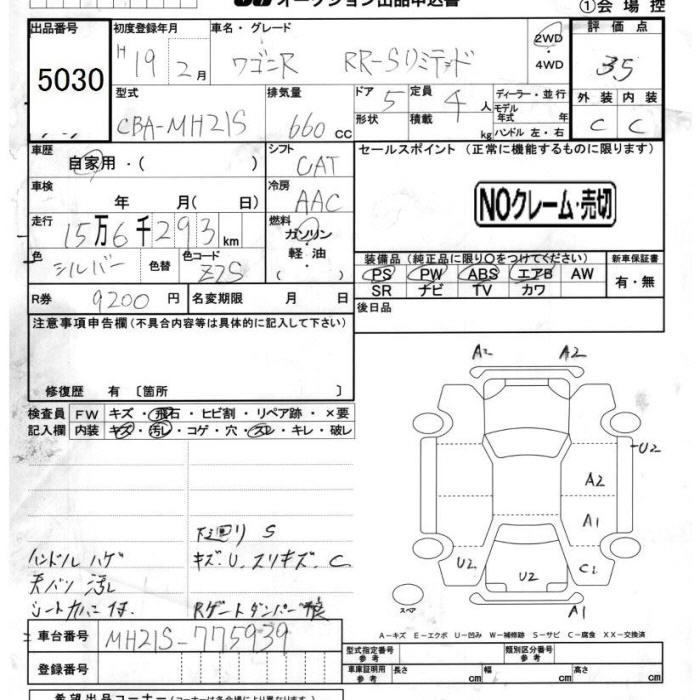 オークション出品申込書
①会場控
出品番号 5030
初度登録年月 H19 2月
車名・グレード ワゴンR RR-Sリミテッド
2WD・4WD
評価点 3.5
外装 C 内装 C
型式 CBA-MH21S
排気量 660cc
ドア 5 定員 4人
形状 積載 kg
ディーラー・並行
モデル年式 年
ハンドル 左・右
車歴 自家用・( )
シフト CAT
セールスポイント (正常に機能するものに限ります)
車検 年 月( 日)
冷房 AAC
NOクレーム・売切
走行 15万6千293km
燃料 ガソリン・軽油・( )
色 シルバー 色替 色コード Z2S
装備品 (純正品に限り○をつけてください)
新車保証書 有・無
PS PW ABS エアB AW
SR ナビ TV カワ
R券 9200円 名変期限 月 日
後日品
注意事項申告欄 (不具合内容等は具体的に記入して下さい)
修復歴 有 〔箇所 〕
検査員記入欄
FW キズ・飛石・ヒビ割・リペア跡・×要
内装 キズ・汚レ・コゲ・穴・スレ・キレ・破レ
A2 A2
U2
A2
A1
U2 U2 C1
A1
スペア
下廻り S
ハンドル ハゲ キズ.U.スリキズ.C
天バリ 汚レ
シートカバー付. Rゲートダンパー不良
A－キズ E－エクボ U－凹み W－補修跡 S－サビ C－腐食 XX－交換済
車台番号 MH21S-775939
登録番号
型式指定番号 参考 類別区分番号 参考
車庫証明用 参考 長さ cm 幅 cm 高さ cm
希望出品コーナー (コーナーは各会場により異なります)